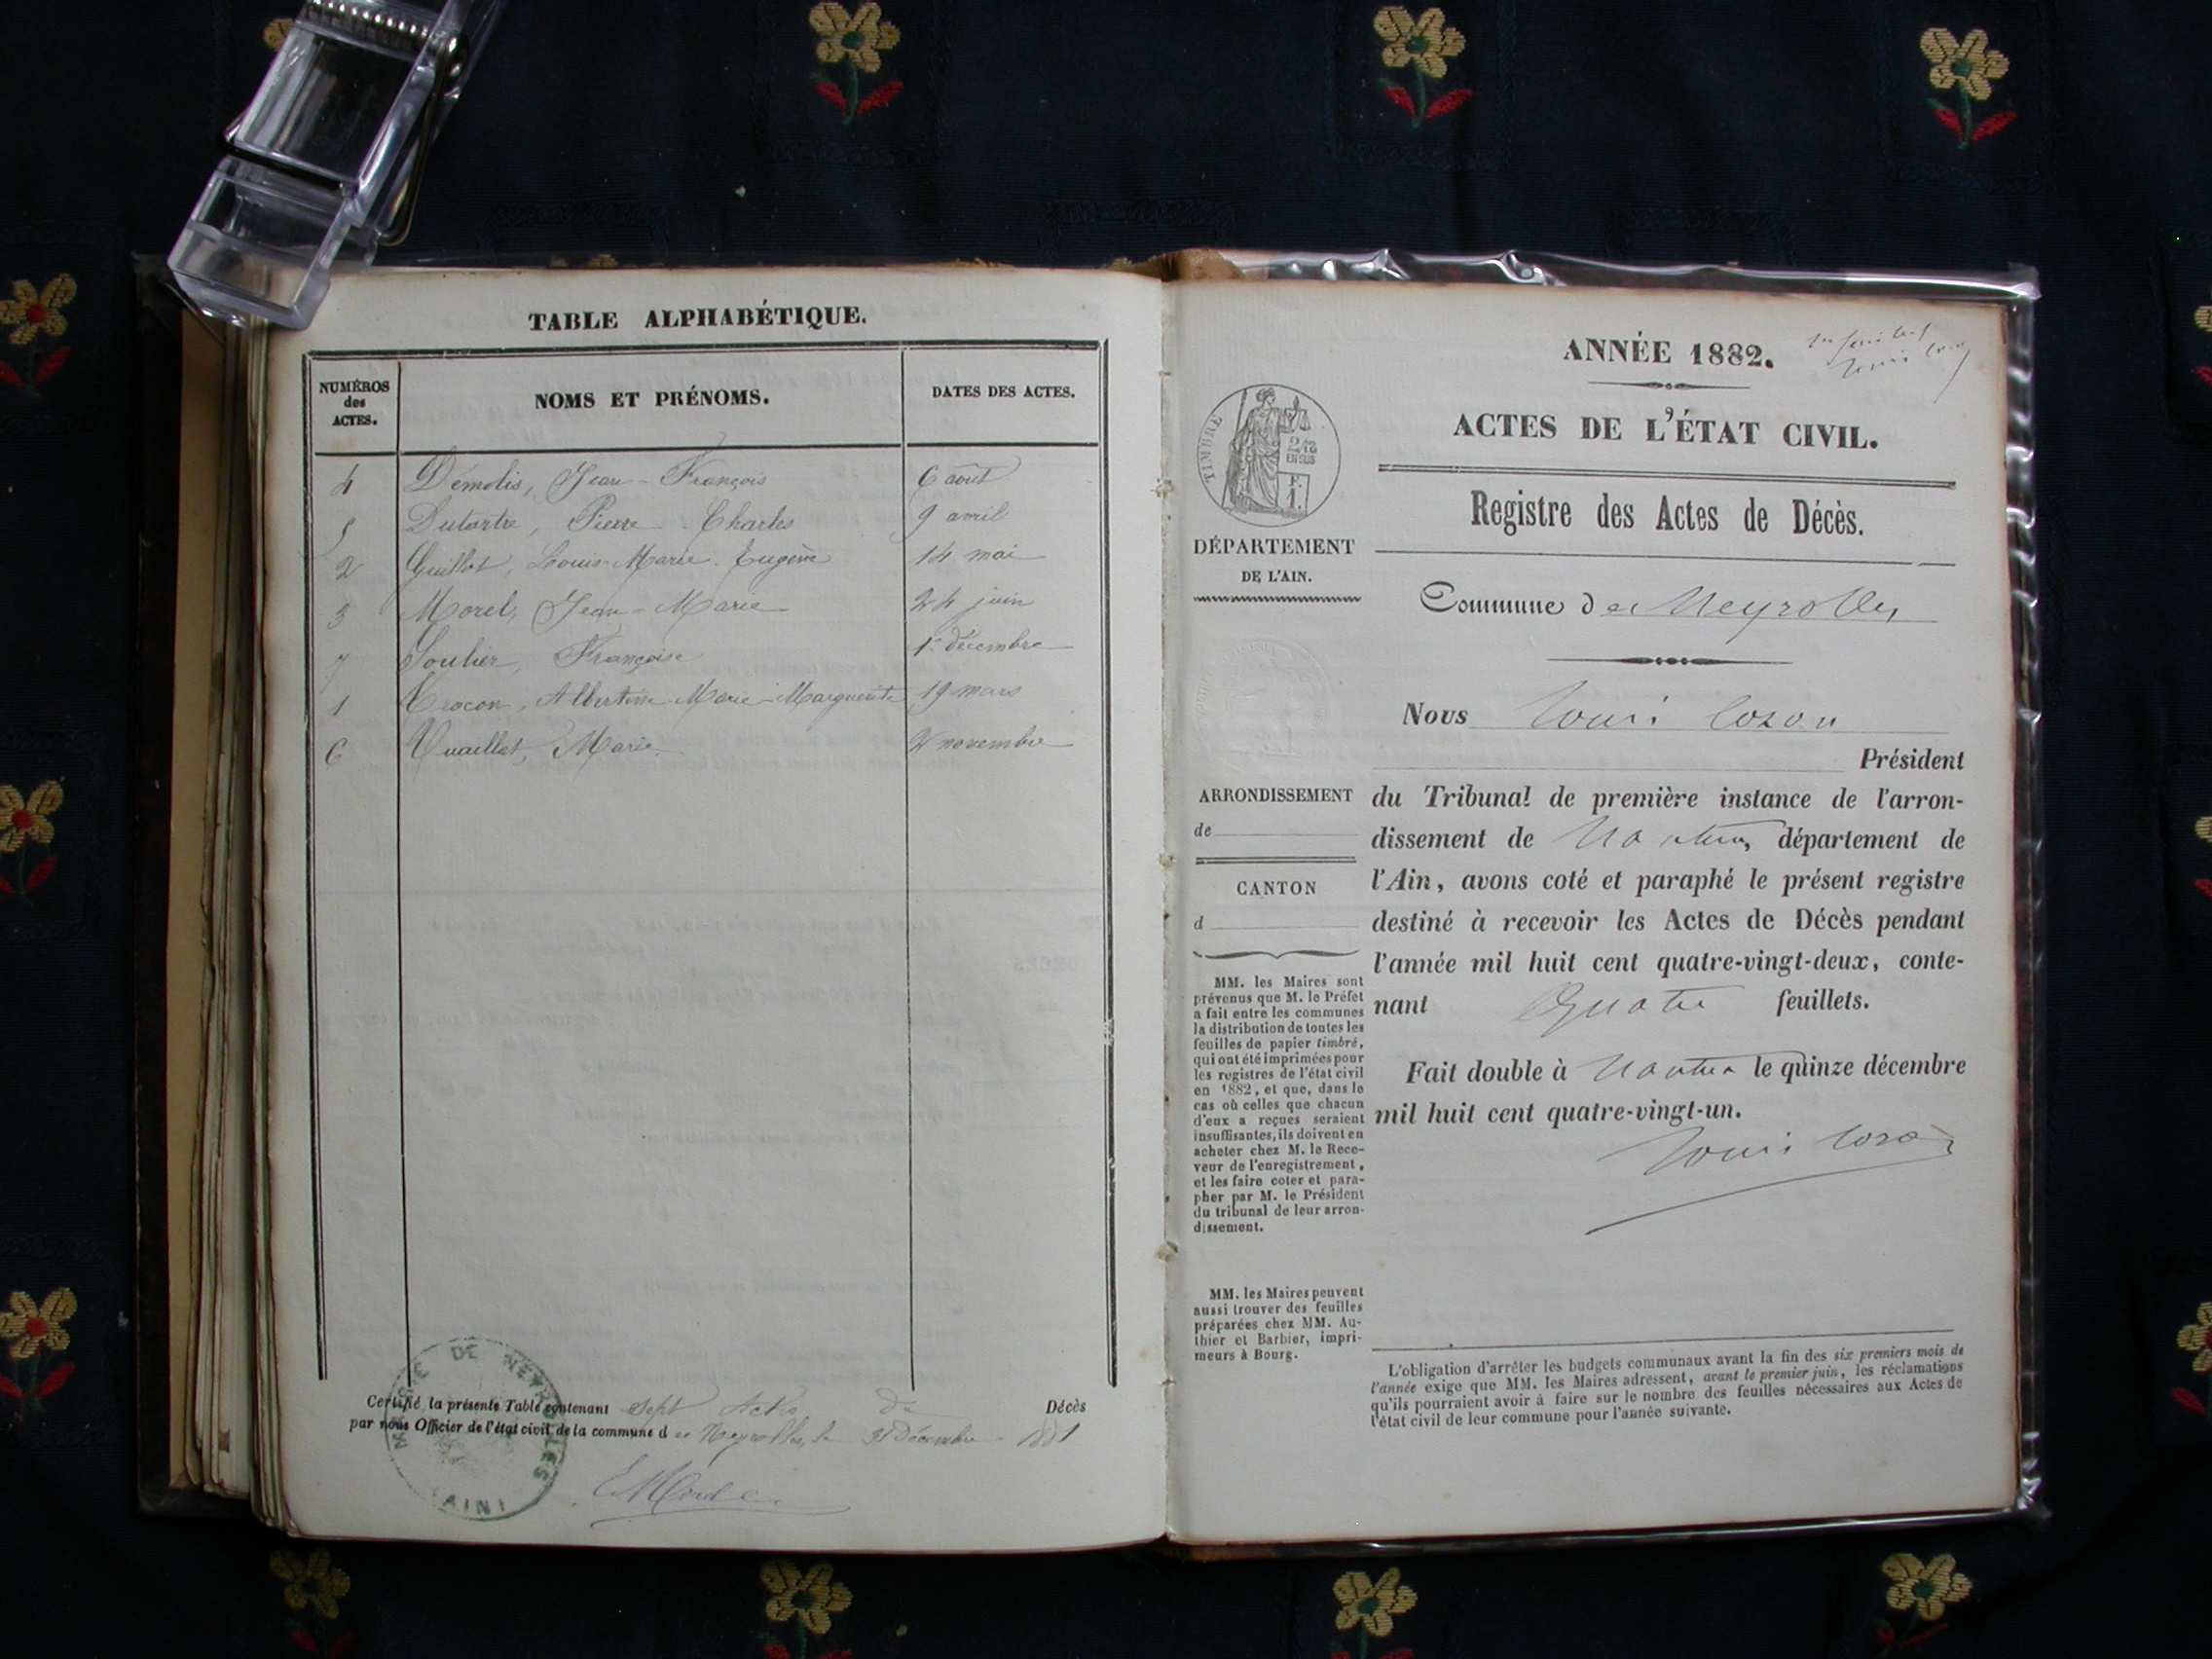 TABLE ALPHABÉTIQUE.
NUMÉROS
des
ACTES.
NOMS ET PRÉNOMS.
DATES DES ACTES.
4 Démolis, Jean-François 6 août
5 Dutartre, Pierre-Charles 9 avril
2 Guillot, Louis-Marie-Eugène 14 mai
3 Morel, Jean-Marie 24 juin
7 Soulier, Françoise 1er décembre
1 Albertine-Marie-Marguerite 19 mars
6 Vuaillat, Marie 2 novembre
Certifié la présente Table contenant sept actes de Décès
par nous Officier de l'état civil de la commune des Neyrolles, le 31 Décembre 1881
DE NEYROLLES
(AIN)
ANNÉE 1882.
ACTES DE L'ÉTAT CIVIL.
TIMBRE
2/10
EN SUS
F.
1.
Registre des Actes de Décès.
DÉPARTEMENT
DE L'AIN.
Commune des Neyrolles
Nous
Président
du Tribunal de première instance de l'arron-
dissement de Nantua, département de
l'Ain, avons coté et paraphé le présent registre
destiné à recevoir les Actes de Décès pendant
l'année mil huit cent quatre-vingt-deux, conte-
nant Quatre feuillets.
Fait double à Nantua le quinze décembre
mil huit cent quatre-vingt-un.
ARRONDISSEMENT
de
CANTON
d
MM. les Maires sont
prévenus que M. le Préfet
a fait entre les communes
la distribution de toutes les
feuilles de papier timbré,
qui ont été imprimées pour
les registres de l'état civil
en 1882, et que, dans le
cas où celles que chacun
d'eux a reçues seraient
insuffisantes, ils doivent en
acheter chez M. le Rece-
veur de l'enregistrement,
et les faire coter et para-
pher par M. le Président
du tribunal de leur arron-
dissement.
MM. les Maires peuvent
aussi trouver des feuilles
préparées chez MM. Au-
thier et Barbier, impri-
meurs à Bourg.
L'obligation d'arrêter les budgets communaux avant la fin des six premiers mois de
l'année exige que MM. les Maires adressent, avant le premier juin, les réclamations
qu'ils pourraient avoir à faire sur le nombre des feuilles nécessaires aux Actes de
l'état civil de leur commune pour l'année suivante.